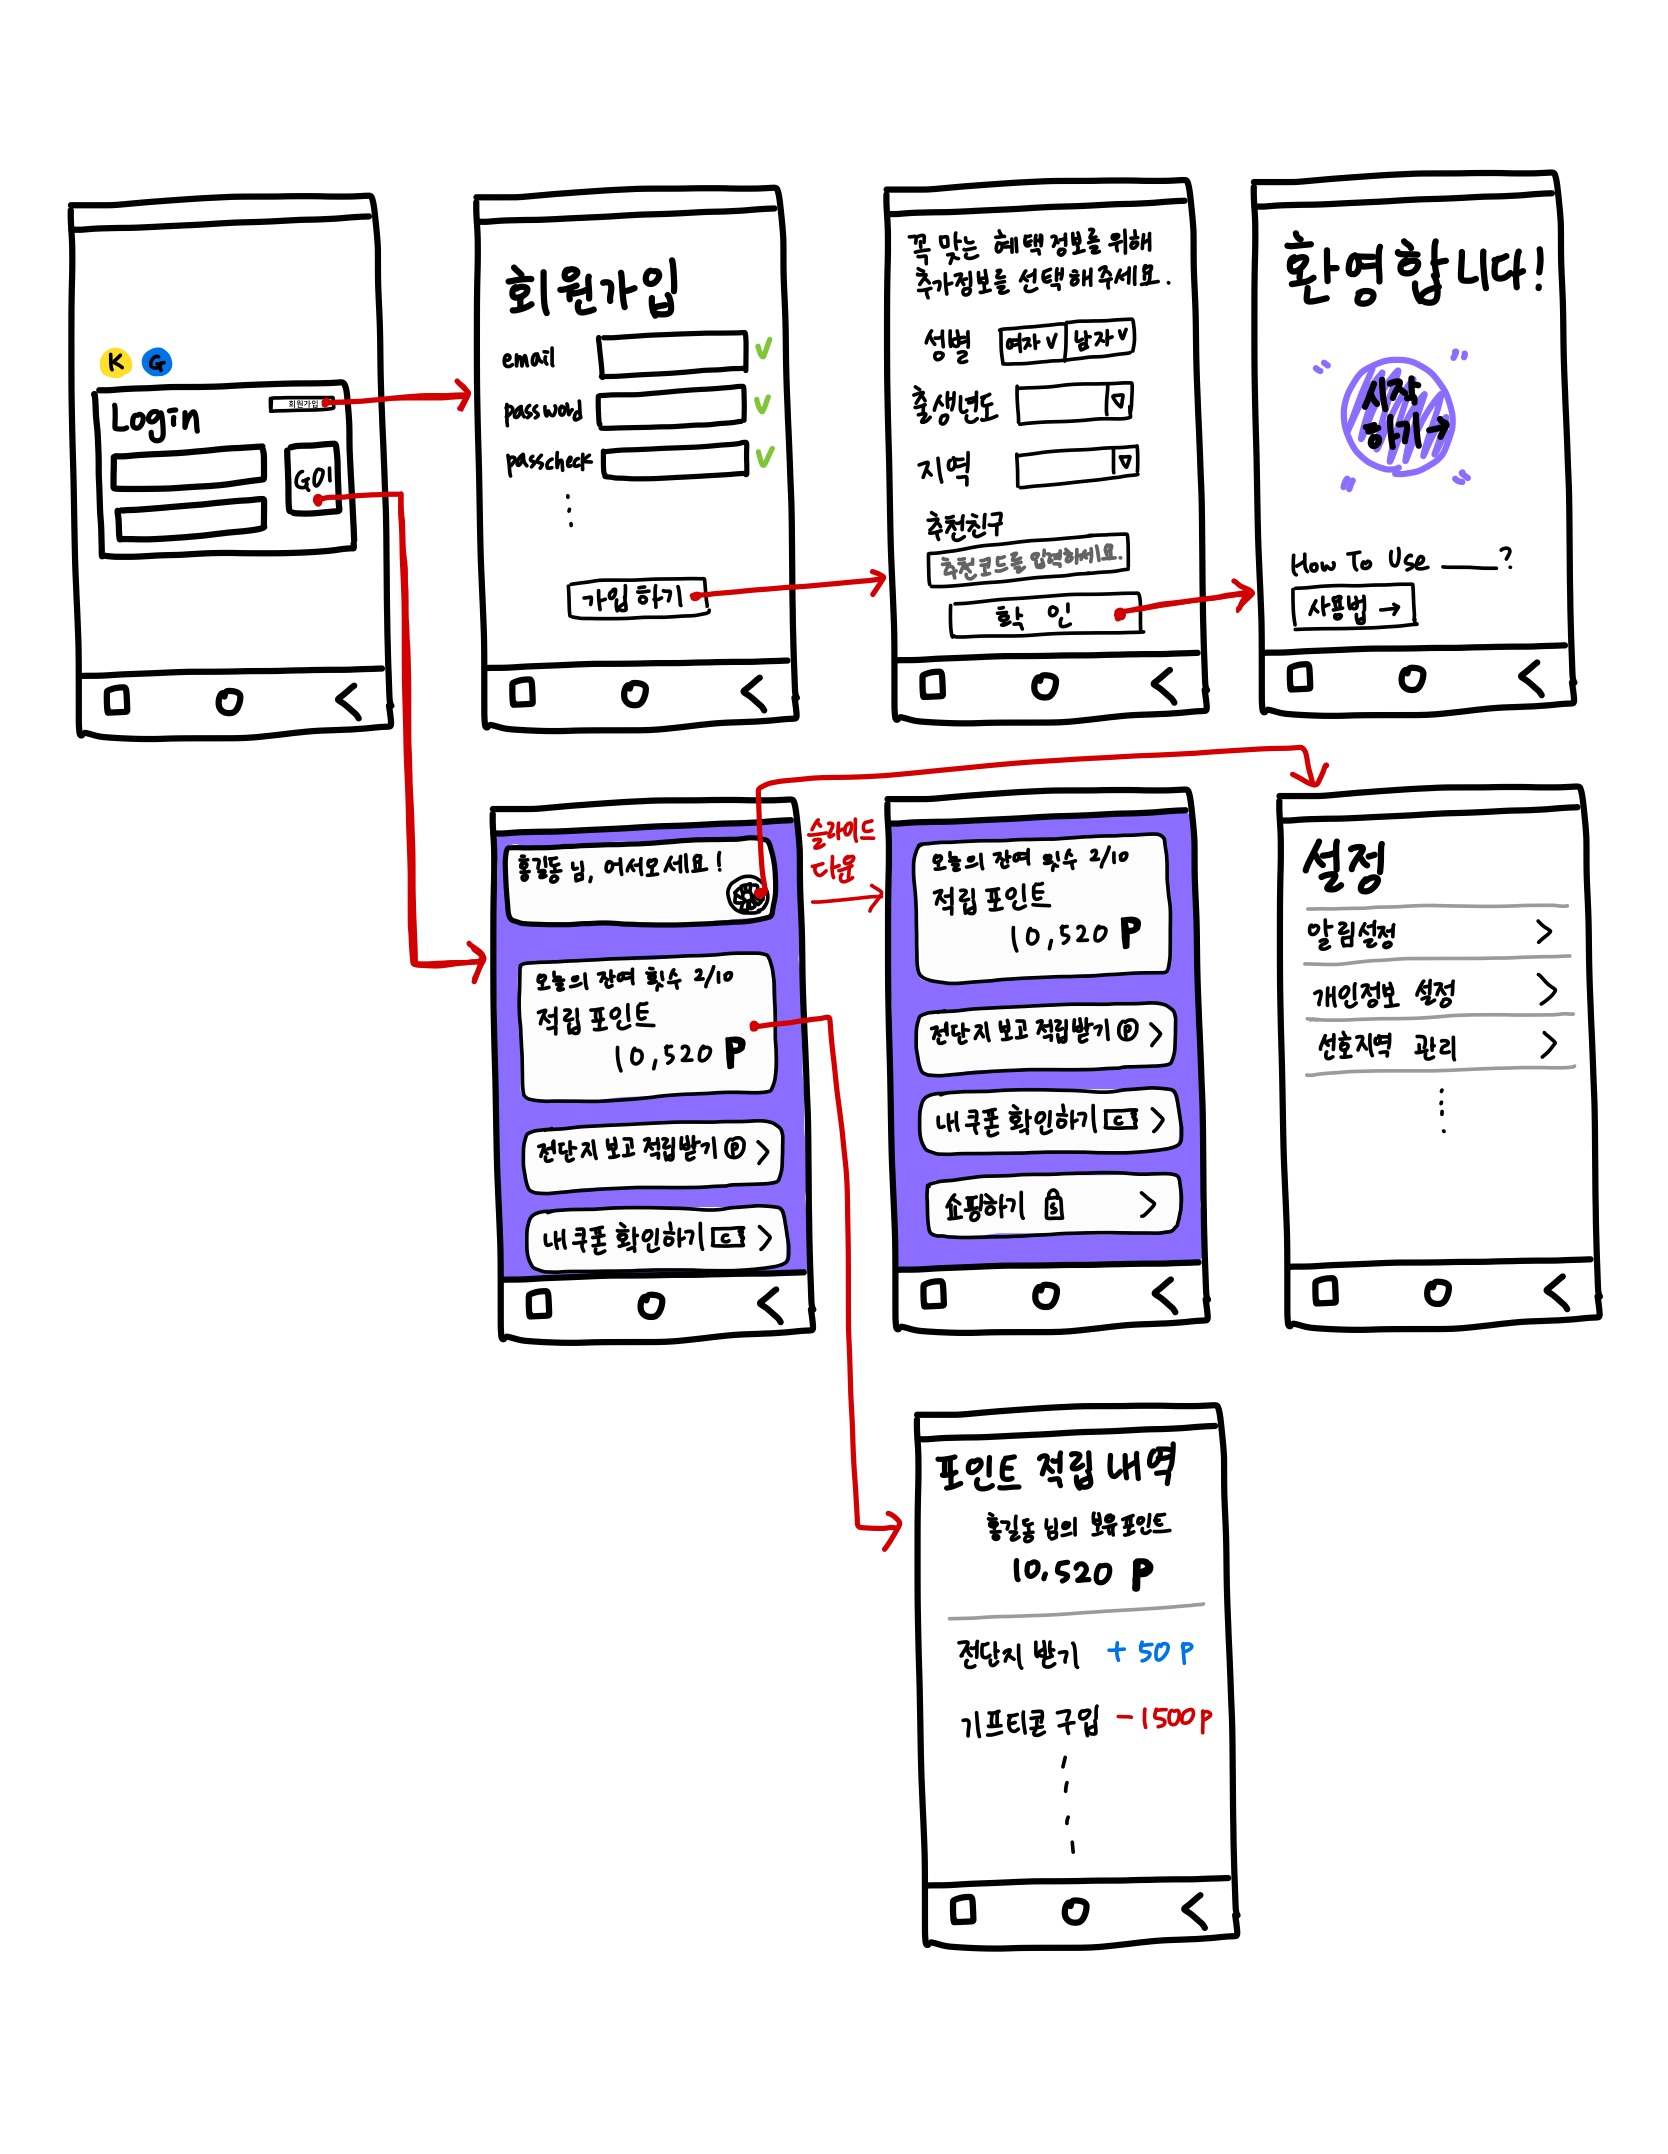 K G
Login
회원가입
GO!
회원가입
email
password
passcheck
가입하기
꼭 맞는 혜택정보를 위해
추가정보를 선택해주세요.
성별 여자 v 남자 v
출생년도
지역
추천친구
추천코드를 입력하세요.
확 인
환영합니다!
시작
하기→
How To Use ____?
사용법 →
홍길동 님, 어서오세요!
오늘의 잔여 횟수 2/10
적립 포인트
10,520 P
전단지 보고 적립받기 P >
내 쿠폰 확인하기 C >
슬라이드
다운
오늘의 잔여 횟수 2/10
적립 포인트
10,520 P
전단지 보고 적립받기 P >
내 쿠폰 확인하기 C >
쇼핑하기 S >
설정
알림설정 >
개인정보 설정 >
선호지역 관리 >
포인트 적립 내역
홍길동 님의 보유 포인트
10,520 P
전단지 받기 + 50 P
기프티콘 구입 -1500P